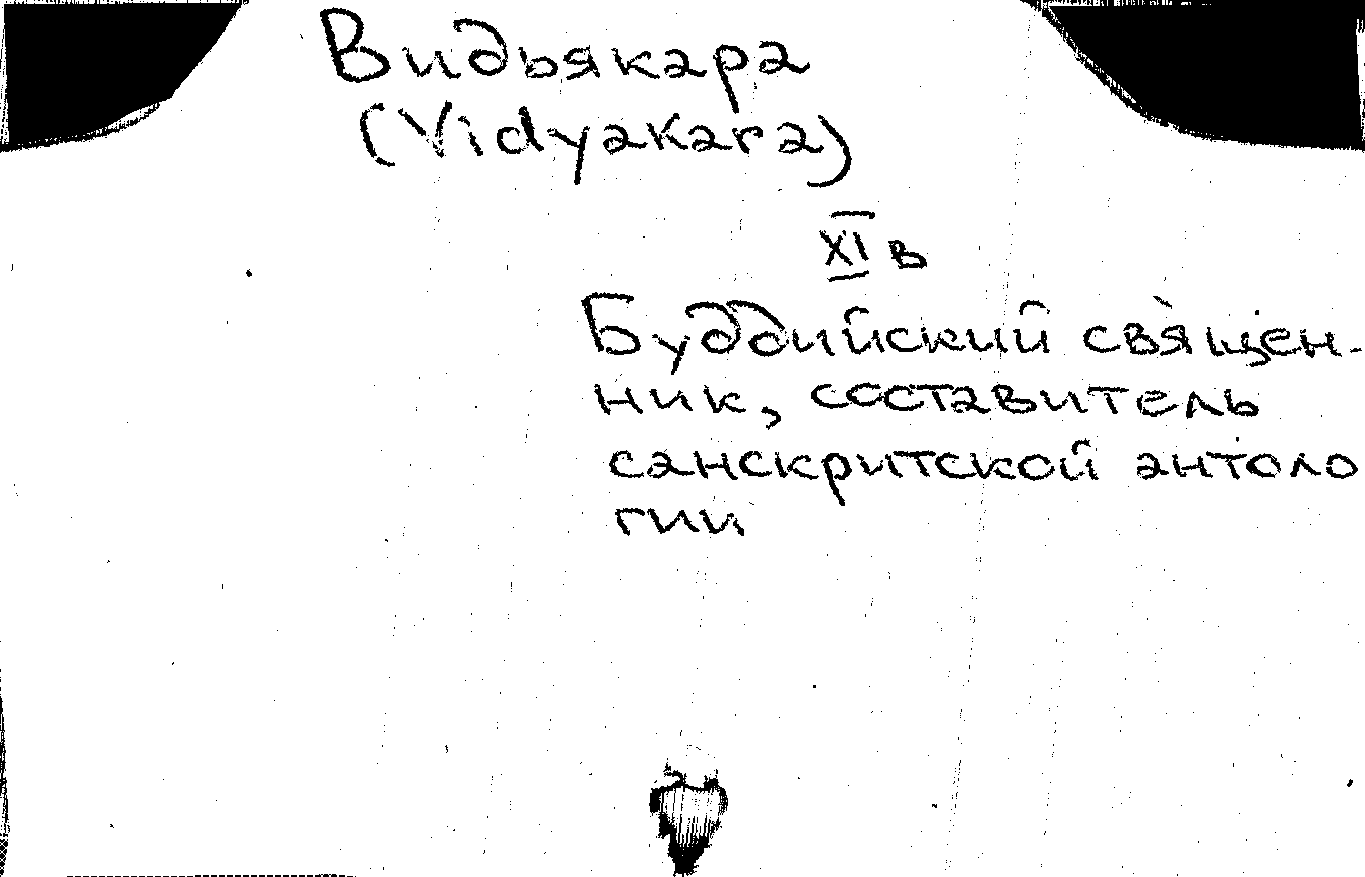 Видьякара
(Vidyakara)
XI в
Буддийский священ-
ник, составитель
санскритской антоло
гии